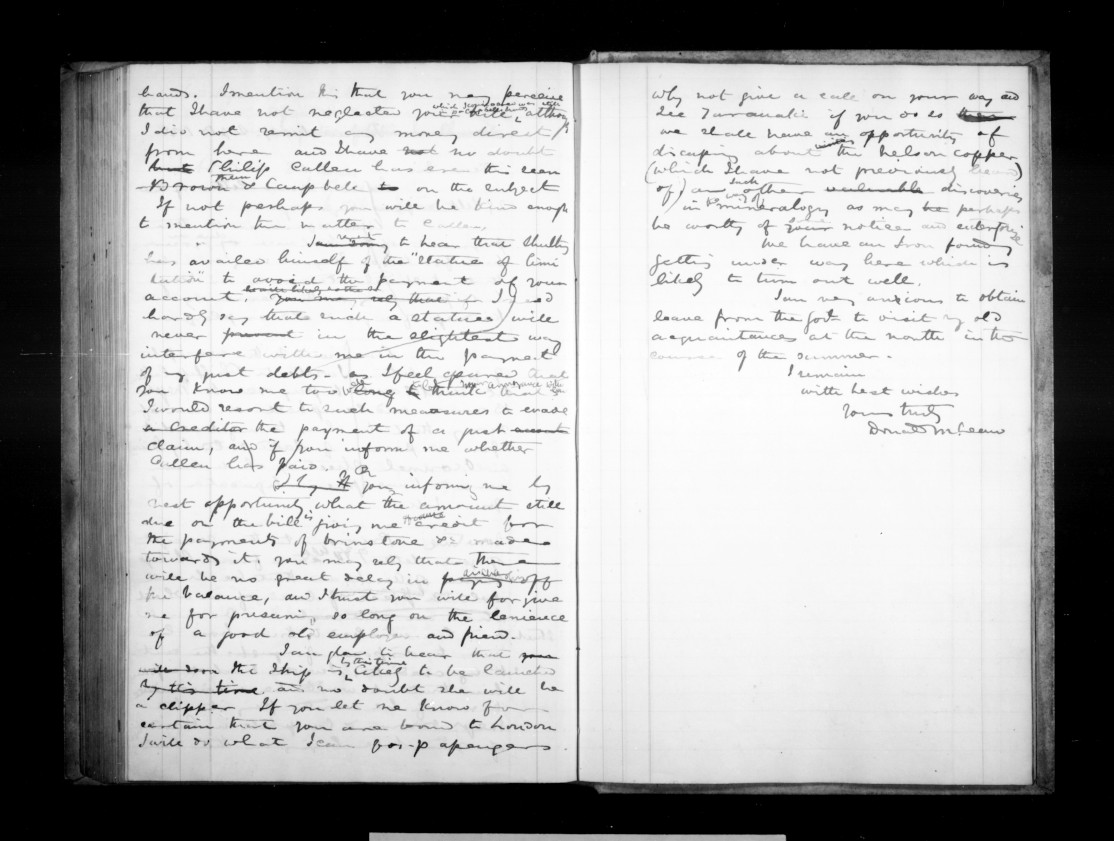 hands. I mention this that you may perceive
that I have not neglected your bill, although
I did not remit any money direct
from here and I have not no doubt
but Philip Callen has ere this seen
Brown & Campbell to on the subject
If not perhaps you will be kind enough
to mention the matter to Callen.
I am sorry to hear that
has availed himself of the "Statue of limi
tation" to avoid the payment of your
account. You may rely that for I need
hardly say that such a statue will
never prevent in the slightest way
interfere with me in the payment
of my just debts - as I feel assured that
you know me too long to think that
I would resort to such measures to evade
a creditor the payment of a just
claim, and if you inform me whether
Callen has paid or
you informing me by
next opportunity, what the amount still
due on the bill is giving me credit for
the payments of brimstone &c made
towards it, you may rely that there
will be no great delay in paying off
the balance, and I trust you will forgive
me for presuming so long on the lenience
of a good old employer and friend.
I am glad to hear that your
will soon the Ship is by this time likely to be launched
by this time and no doubt she will be
a clipper, If you let me know for
certain that you are bound to London
I will do what I can for passengers
why not give a call on your way and
see Taranaki if you do so then
we shall have an opportunity of
discussing about the Nelson copper
(which I have not previously heard
of) and such other valuable discoveries
in the way of mineralogy as may be perhaps
be worthy of your notice and enterprise
We have an Iron foundry
getting under way here which is
likely to turn out well.
I am very anxious to obtain
leave from the Govt to visit my old
acquaintances at the north in the
course of the summer.
I remain
with best wishes
Yours truly
Donald McLean